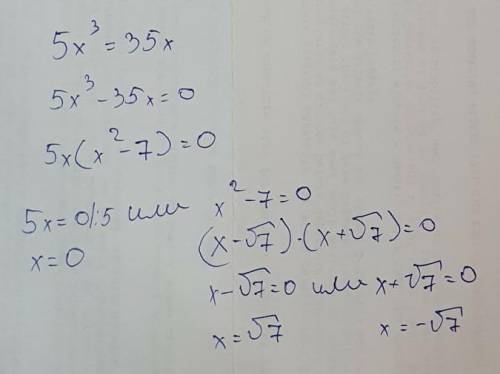 5x³=35x
5x³-35x=0
5x(x²-7)=0
5x=0/:5 или x²-7=0
x=0
(x-√7)·(x+√7)=0
x-√7=0 или x+√7=0
x=√7 x=-√7